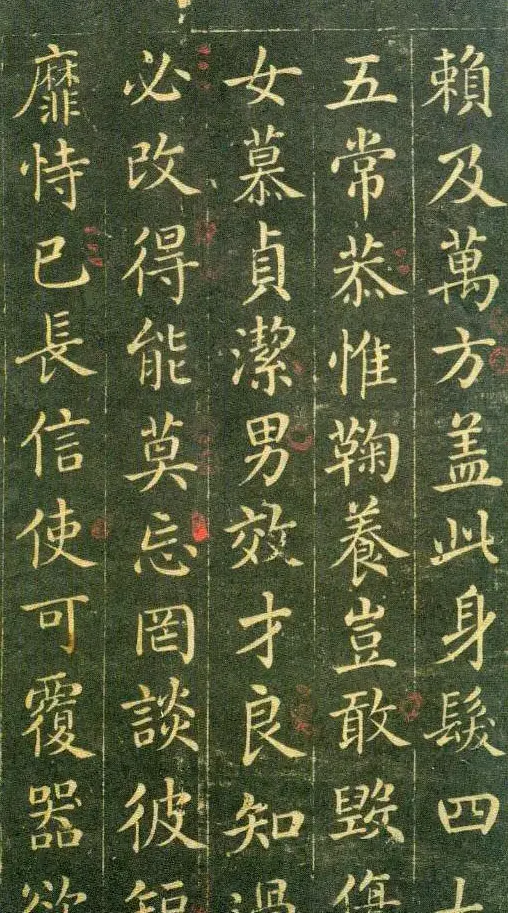 賴及萬方盖此身髮四大
五常恭惟鞠養豈敢毀傷
女慕貞潔男效才良知過
必改得能莫忘罔談彼短
靡恃已長信使可覆器欲